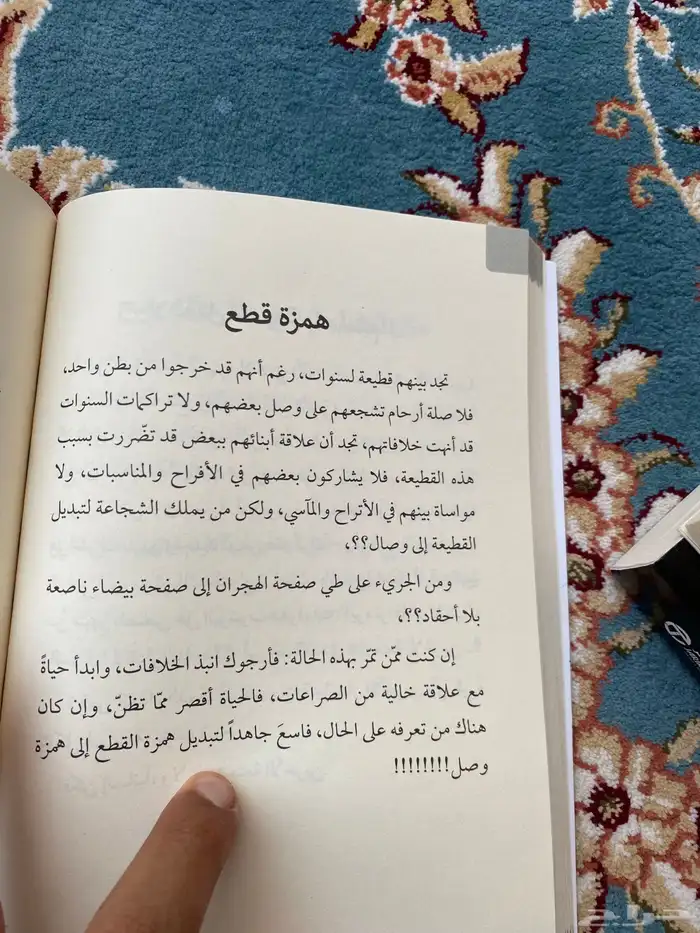 همزة قطع
تجد بينهم قطيعة لسنوات، رغم أنهم قد خرجوا من بطن واحد،
فلا صلة أرحام تشجعهم على وصل بعضهم، ولا تراكمات السنوات
قد أنهت خلافاتهم، تجد أن علاقة أبنائهم ببعض قد تضّررت بسبب
هذه القطيعة، فلا يشاركون بعضهم في الأفراح والمناسبات، ولا
مواساة بينهم في الأتراح والمآسي، ولكن من يملك الشجاعة لتبديل
القطيعة إلى وصال؟؟،
ومن الجريء على طي صفحة الهجران إلى صفحة بيضاء ناصعة
بلا أحقاد؟؟،
إن كنت ممّن تمّر بهذه الحالة: فأرجوك انبذ الخلافات، وابدأ حياةً
مع علاقة خالية من الصراعات، فالحياة أقصر ممّا تظنّ، وإن كان
هناك من تعرفه على الحال، فاسعَ جاهداً لتبديل همزة القطع إلى همزة
وصل!!!!!!!!
حراج